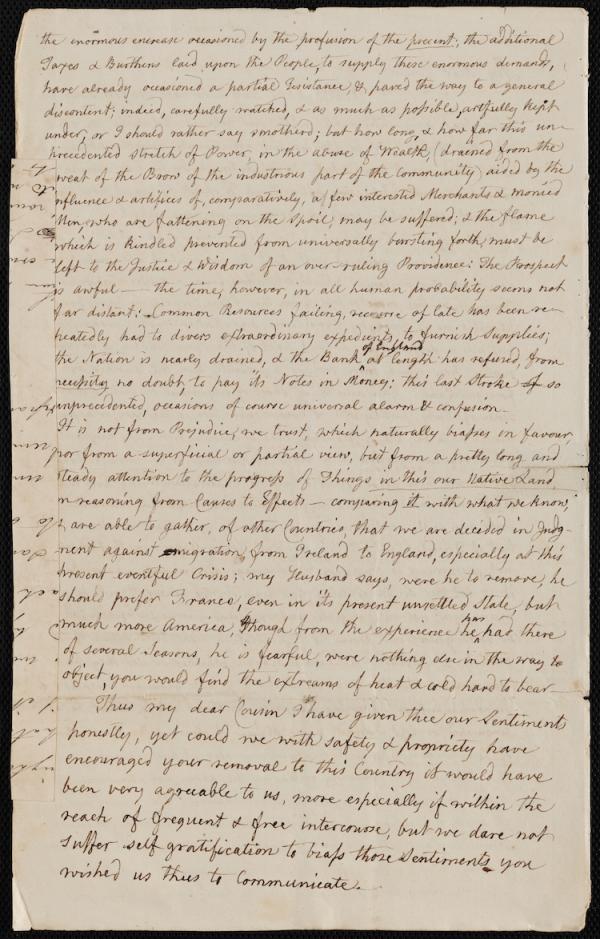 the enormous encrease occasioned by the profusion of the present; the additional
Taxes & Burthens laid upon the People, to supply these enormous demands,
have already occasioned a partial resistance, & paved the way to a general
discontent; indeed, carefully watched, & as much as possible, artfully kept
under, or I should rather say smotherd; but how long, & how far this un-
precedented stretch of Power, in the abuse of Wealth, (drained from the
sweat of the Brow of the industrious part of the community) aided by the
influence & artifices of, comparatively, a few interested Merchants & monied
Men, who are fattening on the Spoil, may be suffered; & the flame
which is kindled prevented from universally bursting forth, must be
left to the Justice & Wisdom of an over-ruling Providence: The Prospect
is awful — the time, however, in all human probability seems not
far distant: Common Resources failing, recourse of late has been re-
peatedly had to divers extraordinary expedients, to furnish Supplies;
the Nation is nearly drained, & the Bank of England at length has refused, from
necessity no doubt, to pay its Notes in Money: this last Stroke so
unprecedented, occasions of course universal alarm & confusion.
It is not from Prejudice, we trust, which naturally biasses in favour,
nor from a superficial or partial view, but from a pretty long and
steady attention to the progress of Things in this our Native Land
in reasoning from Causes to Effects — comparing it with what we know,
& are able to gather, of other Countries, that we are decided in Judg-
ment against emigration from Ireland to England, especially at this
present eventful Crisis; my Husband says, were he to remove, he
should prefer France, even in its present unsettled State, but
much more America, though from the experience he has had there
of several Seasons, he is fearful, were nothing else in the way to
object, you would find the extreams of heat & cold hard to bear—
Thus my dear Cousin I have given thee our Sentiments
honestly, yet could we with safety & propriety have
encouraged your removal to this Country it would have
been very agreeable to us, more especially if within the
reach of frequent & free intercourse, but we dare not
suffer self gratification to biass those Sentiments you
wished us thus to Communicate.